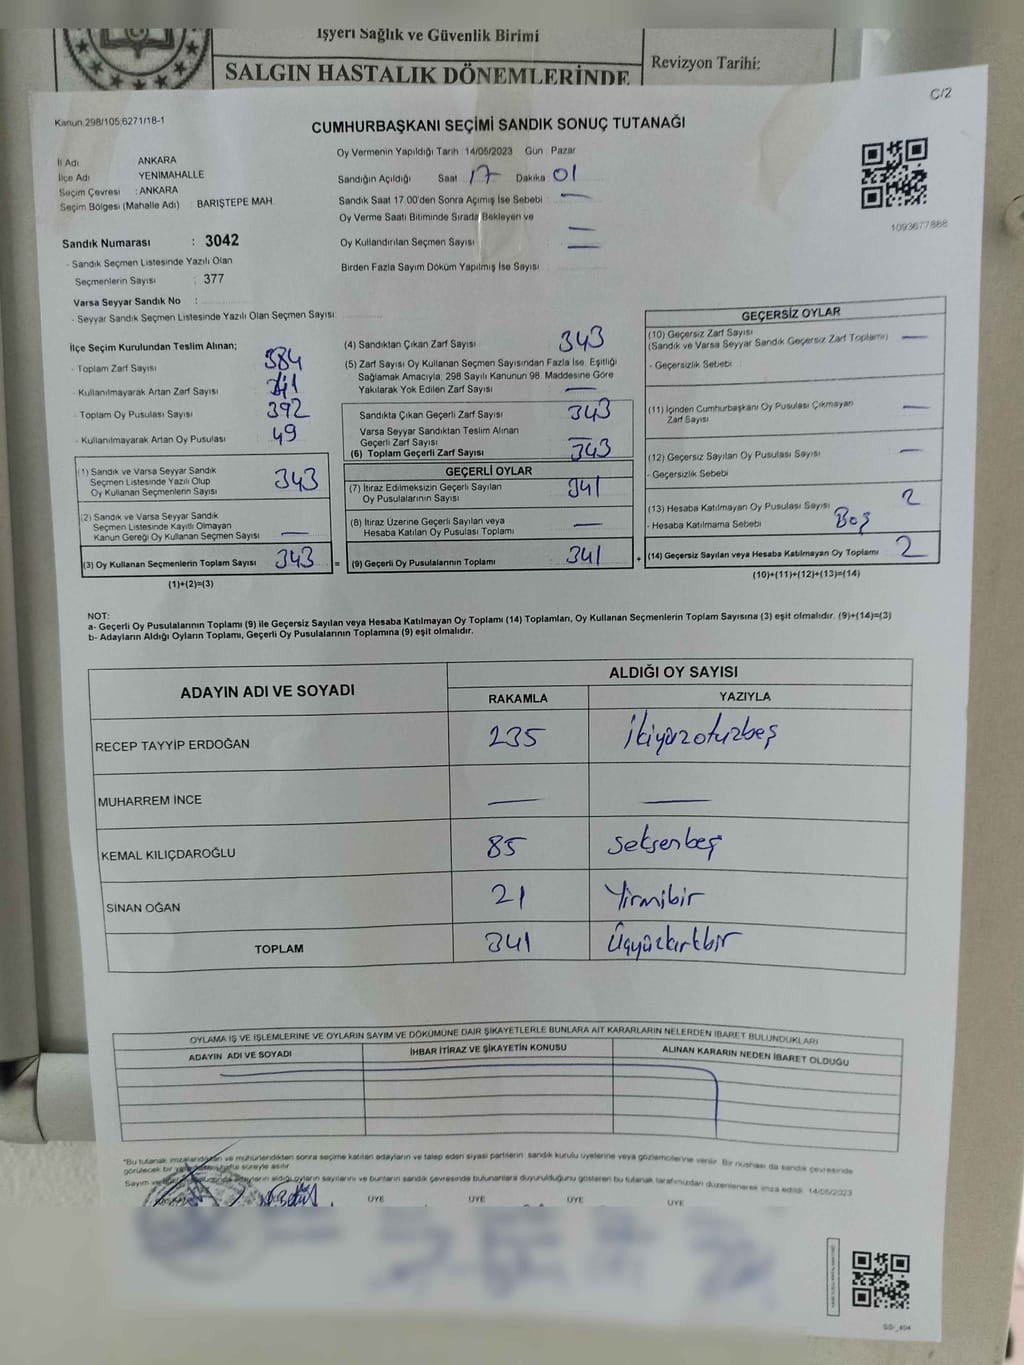 İşyeri Sağlık ve Güvenlik Birimi
SALGIN HASTALIK DÖNEMLERİNDE
Revizyon Tarihi:
C/2
Kanun 298/105,6271/18-1
CUMHURBAŞKANI SEÇİMİ SANDIK SONUÇ TUTANAĞI
İl Adı ANKARA
İlçe Adı YENİMAHALLE
Seçim Çevresi : ANKARA
Seçim Bölgesi (Mahalle Adı) : BARIŞTEPE MAH.
Oy Vermenin Yapıldığı Tarih 14/05/2023 Gün Pazar
Sandığın Açıldığı Saat 17 Dakika 01
Sandık Saat 17.00'den Sonra Açımış İse Sebebi : —
Oy Verme Saati Bitiminde Sırada Bekleyen ve
Oy Kullandırılan Seçmen Sayısı —
Birden Fazla Sayım Döküm Yapılmış İse Sayısı —
1093677888
Sandık Numarası : 3042
- Sandık Seçmen Listesinde Yazılı Olan
Seçmenlerin Sayısı : 377
Varsa Seyyar Sandık No :
- Seyyar Sandık Seçmen Listesinde Yazılı Olan Seçmen Sayısı:
İlçe Seçim Kurulundan Teslim Alınan;
- Toplam Zarf Sayısı 384
- Kullanılmayarak Artan Zarf Sayısı 41
- Toplam Oy Pusulası Sayısı 392
- Kullanılmayarak Artan Oy Pusulası 49
(1) Sandık ve Varsa Seyyar Sandık
Seçmen Listesinde Yazılı Olup
Oy Kullanan Seçmenlerin Sayısı 343
(2) Sandık ve Varsa Seyyar Sandık
Seçmen Listesinde Kayıtlı Olmayan
Kanun Gereği Oy Kullanan Seçmen Sayısı —
(3) Oy Kullanan Seçmenlerin Toplam Sayısı 343 =
(1)+(2)=(3)
(4) Sandıktan Çıkan Zarf Sayısı 343
(5) Zarf Sayısı Oy Kullanan Seçmen Sayısından Fazla İse; Eşitliği
Sağlamak Amacıyla; 298 Sayılı Kanunun 98. Maddesine Göre
Yakılarak Yok Edilen Zarf Sayısı —
Sandıkta Çıkan Geçerli Zarf Sayısı 343
Varsa Seyyar Sandıktan Teslim Alınan
Geçerli Zarf Sayısı —
(6) Toplam Geçerli Zarf Sayısı 343
GEÇERLİ OYLAR
(7) İtiraz Edilmeksizin Geçerli Sayılan
Oy Pusulalarının Sayısı 341
(8) İtiraz Üzerine Geçerli Sayılan veya
Hesaba Katılan Oy Pusulası Toplamı —
(9) Geçerli Oy Pusulalarının Toplamı 341 +
GEÇERSİZ OYLAR
(10) Geçersiz Zarf Sayısı
(Sandık ve Varsa Seyyar Sandık Geçersiz Zarf Toplamı) —
- Geçersizlik Sebebi :
(11) İçinden Cumhurbaşkanı Oy Pusulası Çıkmayan
Zarf Sayısı —
(12) Geçersiz Sayılan Oy Pusulası Sayısı —
- Geçersizlik Sebebi
(13) Hesaba Katılmayan Oy Pusulası Sayısı 2
- Hesaba Katılmama Sebebi Boş
(14) Geçersiz Sayılan veya Hesaba Katılmayan Oy Toplamı 2
(10)+(11)+(12)+(13)=(14)
NOT:
a- Geçerli Oy Pusulalarının Toplamı (9) ile Geçersiz Sayılan veya Hesaba Katılmayan Oy Toplamı (14) Toplamları, Oy Kullanan Seçmenlerin Toplam Sayısına (3) eşit olmalıdır. (9)+(14)=(3)
b- Adayların Aldığı Oyların Toplamı, Geçerli Oy Pusulalarının Toplamına (9) eşit olmalıdır.
ADAYIN ADI VE SOYADI
ALDIĞI OY SAYISI
RAKAMLA YAZIYLA
RECEP TAYYİP ERDOĞAN 235 İkiyüzotuzbeş
MUHARREM İNCE — —
KEMAL KILIÇDAROĞLU 85 seksenbeş
SİNAN OĞAN 21 Yirmibir
TOPLAM 341 Üçyüzkırkbir
OYLAMA İŞ VE İŞLEMLERİNE VE OYLARIN SAYIM VE DÖKÜMÜNE DAİR ŞİKAYETLERLE BUNLARA AİT KARARLARIN NELERDEN İBARET BULUNDUKLARI
ADAYIN ADI VE SOYADI
İHBAR İTİRAZ VE ŞİKAYETİN KONUSU
ALINAN KARARIN NEDEN İBARET OLDUĞU
"Bu tutanak imzalandıktan ve mühürlendikten sonra seçime katılan adayların ve talep eden siyasi partilerin sandık kurulu üyelerine veya gözlemcilerine verilir. Bir nüshası da sandık çevresinde
görülecek bir hafta süreyle asılır
Sayım aldığı oyların sayılarını ve bunların sandık çevresinde bulunanlara duyurulduğunu gösteren bu tutanak tarafımızdan düzenlenerek imza edildi. 14/05/2023
ÜYE ÜYE ÜYE ÜYE